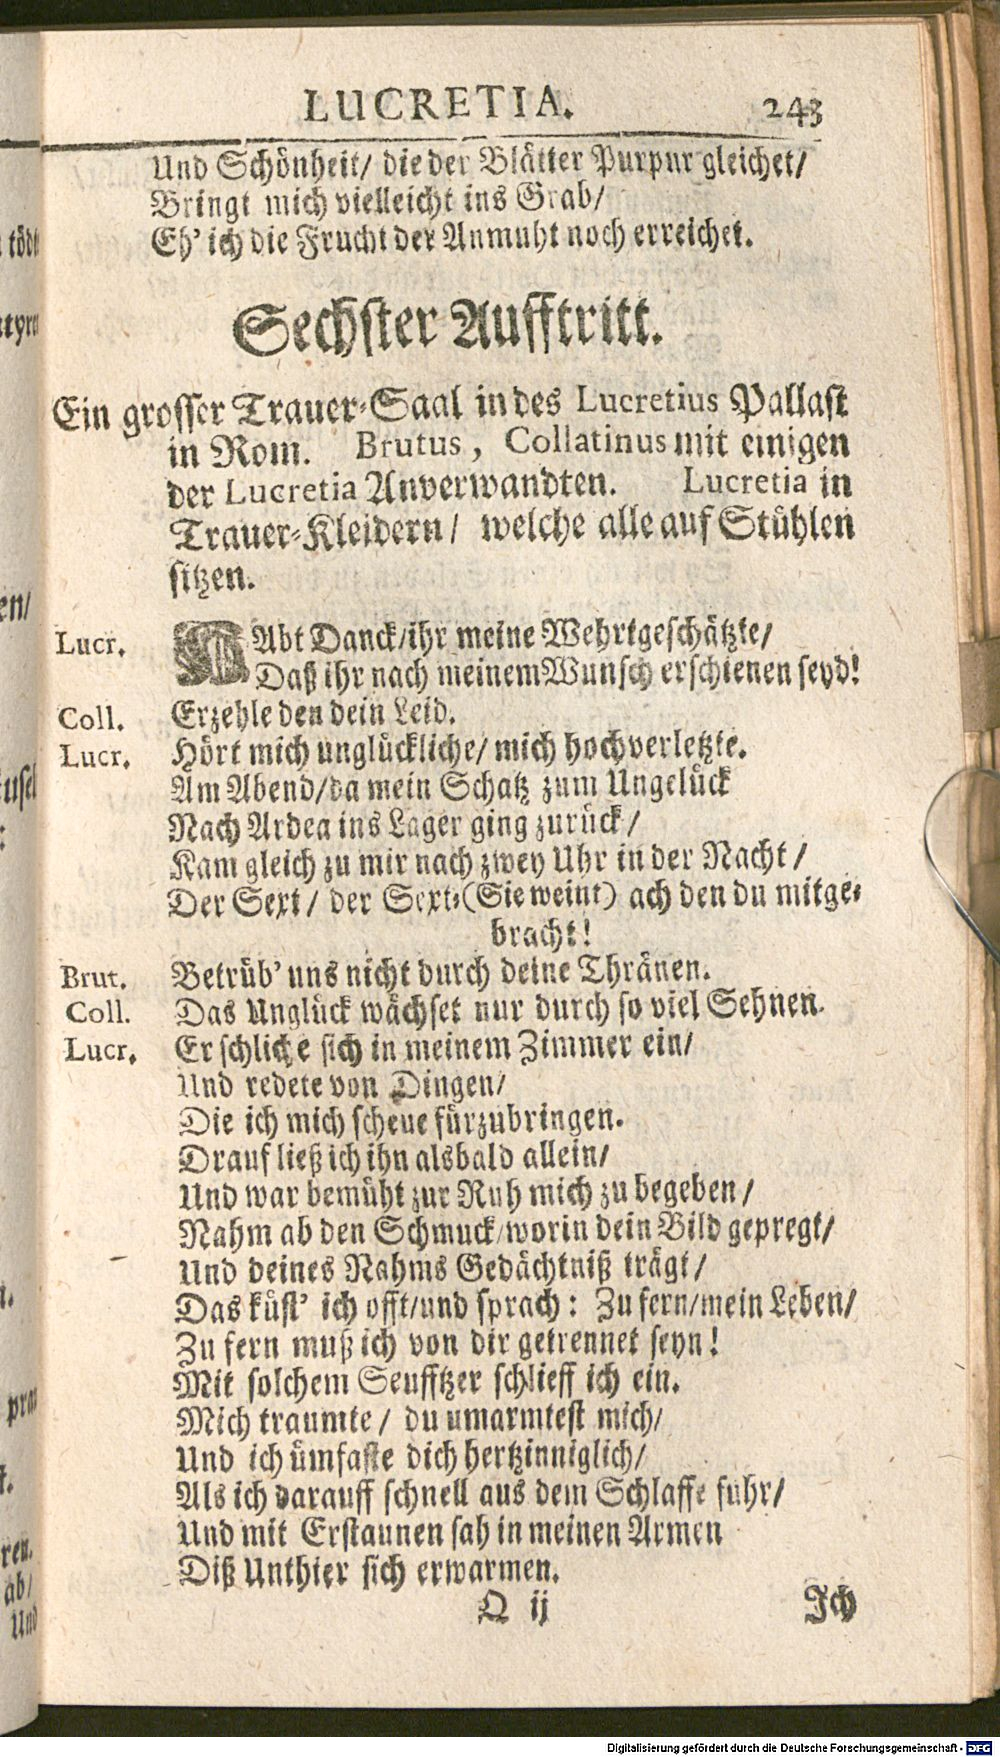 LUCRETIA. 243
Und Schönheit/ die der Blätter Purpur gleichet/
Bringt mich vielleicht ins Grab/
Eh' ich die Frucht der Anmuht noch erreichet.
Sechster Aufftritt.
Ein grosser Trauer-Saal in des Lucretius Pallast
in Rom. Brutus, Collatinus mit einigen
der Lucretia Anverwandten. Lucretia in
Trauer-Kleidern/ welche alle auf Stühlen
sitzen.
Lucr. HAbt Danck/ihr meine Wehrtgeschätzte/
Daß ihr nach meinem Wunsch erschienen seyd!
Coll. Erzehle den dein Leid.
Lucr. Hört mich unglückliche/ mich hochverletzte.
Am Abend/da mein Schatz zum Ungelück
Nach Ardea ins Lager ging zurück/
Kam gleich zu mir nach zwey Uhr in der Nacht/
Der Sext/ der Sext-(Sie weint) ach den du mitge-
bracht!
Brut. Betrüb' uns nicht durch deine Thränen.
Coll. Das Unglück wächset nur durch so viel Sehnen.
Lucr. Er schliche sich in meinem Zimmer ein/
Und redete von Dingen/
Die ich mich scheue fürzubringen.
Drauf ließ ich ihn alsbald allein/
Und war bemüht zur Ruh mich zu begeben/
Nahm ab den Schmuck/worin dein Bild gepregt/
Und deines Nahms Gedächtniß trägt/
Das küst' ich offt/und sprach: Zu fern/mein Leben/
Zu fern muß ich von dir getrennet seyn!
Mit solchem Seufftzer schlieff ich ein.
Mich traumte/ du umarmtest mich/
Und ich ümfaste dich hertzinniglich/
Als ich darauff schnell aus dem Schlaffe fuhr/
Und mit Erstaunen sah in meinen Armen
Diß Unthier sich erwarmen.
Q ij Ich
Digitalisierung gefördert durch die Deutsche Forschungsgemeinschaft - DFG